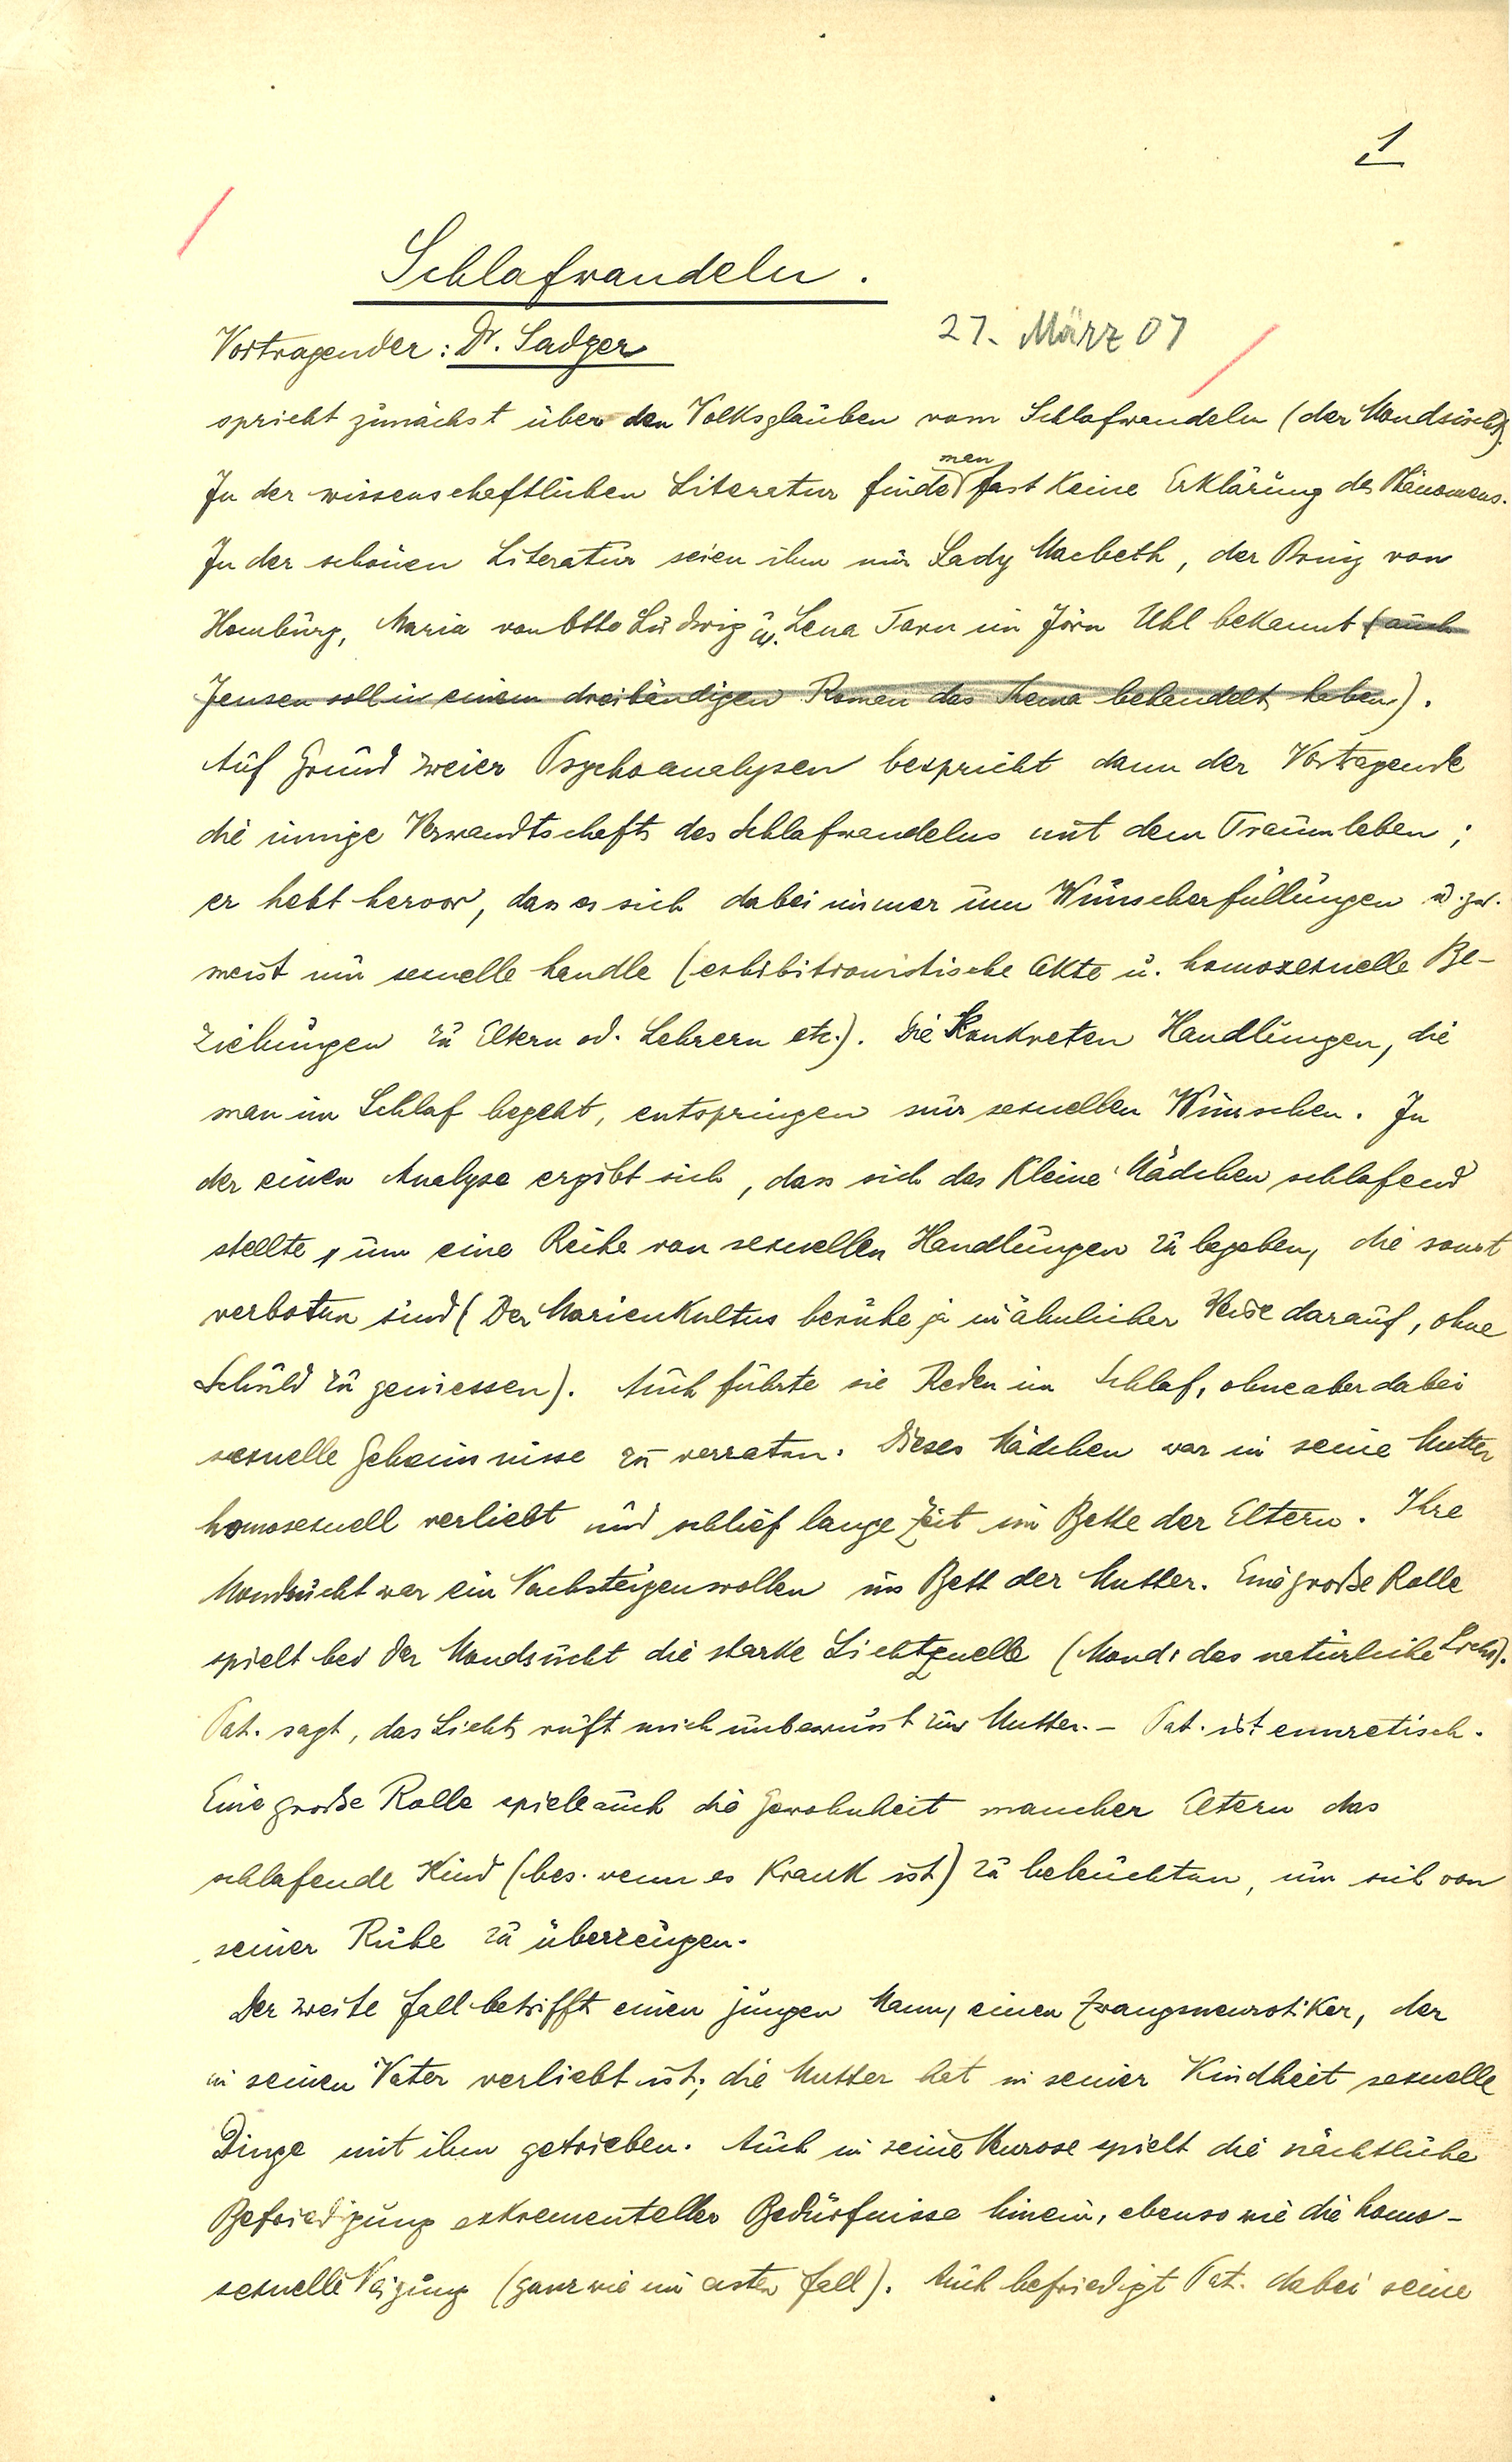 1
Schlafwandeln.
Vortragender: Dr. Sadger
27. März 07
spricht zunächst über den Volksglauben vom Schlafwandeln (der Mondsucht).
In der wissenschaftlichen Literatur finde man fast keine Erklärung des Phänomens.
In der schönen Literatur seien ihm nur Lady Macbeth, der Prinz von
Homburg, Maria von Otto Ludwig u. Lena Tarn im Jörn Uhl bekannt (auch
Jensen soll in einem dreibändigen Roman das Thema behandelt haben).
Auf Grund zweier Psychoanalysen bespricht dann der Vortragende
die innige Verwandtschaft des Schlafwandelns mit dem Traumleben;
er hebt hervor, dass es sich dabei immer um Wunscherfüllungen u. zw.
meist um sexuelle handle (exhibitionistische Akte u. homosexuelle Be-
ziehungen zu Eltern od. Lehrern etc.). Die Konkreten Handlungen, die
man im Schlaf begeht, entspringen nur sexuellen Wünschen. In
der einen Analyse ergibt sich, dass sich das kleine Mädchen schlafend
stellte, um eine Reihe von sexuellen Handlungen zu begehen, die sonst
verboten sind (Der Marienkultus beruhe ja in ähnlicher Weise darauf, ohne
Schuld zu geniessen). Auch führte sie Reden im Schlaf, ohne aber dabei
sexuelle Geheimnisse zu verraten. Dieses Mädchen war in seine Mutter
homosexuell verliebt und schlief lange Zeit im Bette der Eltern. Ihre
Mondsucht war ein Nachsteigenwollen ins Bett der Mutter. Eine große Rolle
spielt bei der Mondsucht die starke Lichtquelle (Mond: das natürliche Licht).
Pat. sagt, das Licht ruft mich unbewusst zur Mutter. – Pat. ist enuretisch.
Eine große Rolle spiele auch die Gewohnheit mancher Eltern das
schlafende Kind (bes. wenn es krank ist) zu beleuchten, um sich von
seiner Ruhe zu überzeugen.
Der zweite Fall betrifft einen jungen Mann, einen Zwangsneurotiker, der
in seinen Vater verliebt ist; die Mutter hat in seiner Kindheit sexuelle
Dinge mit ihm getrieben. Auch in seine Neurose spielt die nächtliche
Befriedigung exkrementeller Bedürfnisse hinein, ebenso wie die homo-
sexuelle Neigung (ganz wie im ersten Fall). Auch befriedigt Pat. dabei seine